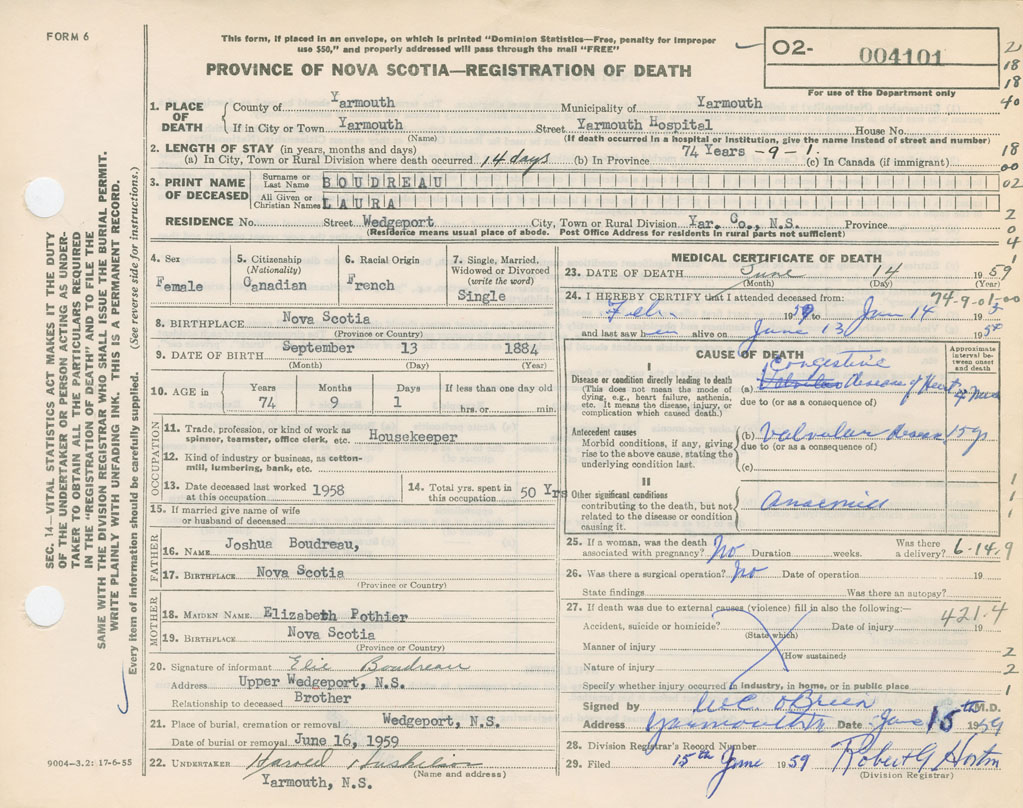 FORM 6
This form, if placed in an envelope, on which is printed "Dominion Statistics—Free, penalty for improper
use $50," and properly addressed will pass through the mail "FREE"
PROVINCE OF NOVA SCOTIA—REGISTRATION OF DEATH
O2- 004101
For use of the Department only
2
18
18
40
18
00
02
2
0
4
1
SEC. 14—VITAL STATISTICS ACT MAKES IT THE DUTY
OF THE UNDERTAKER OR PERSON ACTING AS UNDER-
TAKER TO OBTAIN ALL THE PARTICULARS REQUIRED
IN THE "REGISTRATION OF DEATH" AND TO FILE THE
SAME WITH THE DIVISION REGISTRAR WHO SHALL ISSUE THE BURIAL PERMIT.
WRITE PLAINLY WITH UNFADING INK. THIS IS A PERMANENT RECORD.
Every item of information should be carefully supplied. (See reverse side for instructions.)
1. PLACE OF DEATH
County of Yarmouth Municipality of Yarmouth
If in City or Town Yarmouth Street Yarmouth Hospital House No.
(Name) (If death occurred in a hospital or institution, give the name instead of street and number)
2. LENGTH OF STAY (in years, months and days)
(a) In City, Town or Rural Division where death occurred 14 days (b) In Province 74 Years -9-1. (c) In Canada (if immigrant)
3. PRINT NAME OF DECEASED
Surname or Last Name BOUDREAU
All Given or Christian Names LAURA
RESIDENCE No. Street Wedgeport City, Town or Rural Division Yar. Co., N.S. Province
(Residence means usual place of abode. Post Office Address for residents in rural parts not sufficient)
4. Sex
Female
5. Citizenship
(Nationality)
Canadian
6. Racial Origin
French
7. Single, Married,
Widowed or Divorced
(write the word)
Single
8. BIRTHPLACE Nova Scotia
(Province or Country)
9. DATE OF BIRTH September 13 1884
(Month) (Day) (Year)
10. AGE in
Years Months Days If less than one day old
74 9 1 hrs. or min.
OCCUPATION
11. Trade, profession, or kind of work as
spinner, teamster, office clerk, etc. Housekeeper
12. Kind of industry or business, as cotton-
mill, lumbering, bank, etc.
13. Date deceased last worked
at this occupation 1958
14. Total yrs. spent in
this occupation 50 Yrs
15. If married give name of wife
or husband of deceased
FATHER
16. NAME Joshua Boudreau,
17. BIRTHPLACE Nova Scotia
(Province or Country)
MOTHER
18. MAIDEN NAME Elizabeth Pothier
19. BIRTHPLACE Nova Scotia
(Province or Country)
20. Signature of informant Elie Boudreau
Address Upper Wedgeport, N.S.
Relationship to deceased Brother
21. Place of burial, cremation or removal Wedgeport, N.S.
Date of burial or removal June 16, 1959
22. UNDERTAKER Harold
(Name and address)
Yarmouth, N.S.
9004-3.2: 17-6-55
MEDICAL CERTIFICATE OF DEATH
23. DATE OF DEATH June 14 1959
(Month) (Day) (Year)
24. I HEREBY CERTIFY that I attended deceased from: 74-9-01-00
Feb. 1959 to Jun 14 195
and last saw her alive on June 13 1959
CAUSE OF DEATH
Approximate
interval be-
tween onset
and death
I
Disease or condition directly leading to death
(This does not mean the mode of
dying, e.g., heart failure, asthenia,
etc. It means the disease, injury, or
complication which caused death.)
Congestive
(a) disease of Heart
due to (or as a consequence of)
Antecedent causes
Morbid conditions, if any, giving
rise to the above cause, stating the
underlying condition last.
(b) Valvular disease 15 y
due to (or as a consequence of)
(c)
II
Other significant conditions
contributing to the death, but not
related to the disease or condition
causing it.
1
1
1
25. If a woman, was the death
associated with pregnancy? No Duration weeks. Was there
a delivery? 6-14-9
26. Was there a surgical operation? No Date of operation 19
State findings Was there an autopsy?
27. If death was due to external causes (violence) fill in also the following:—
421.4
Accident, suicide or homicide? Date of injury 19
(State which)
Manner of injury 2
(How sustained)
Nature of injury 2
Specify whether injury occurred in industry, in home, or in public place 1
Signed by O'Brien M.D.
Address Yarmouth Date June 15th 1959
28. Division Registrar's Record Number
29. Filed 15th June 1959 Robert G Horton
(Division Registrar)